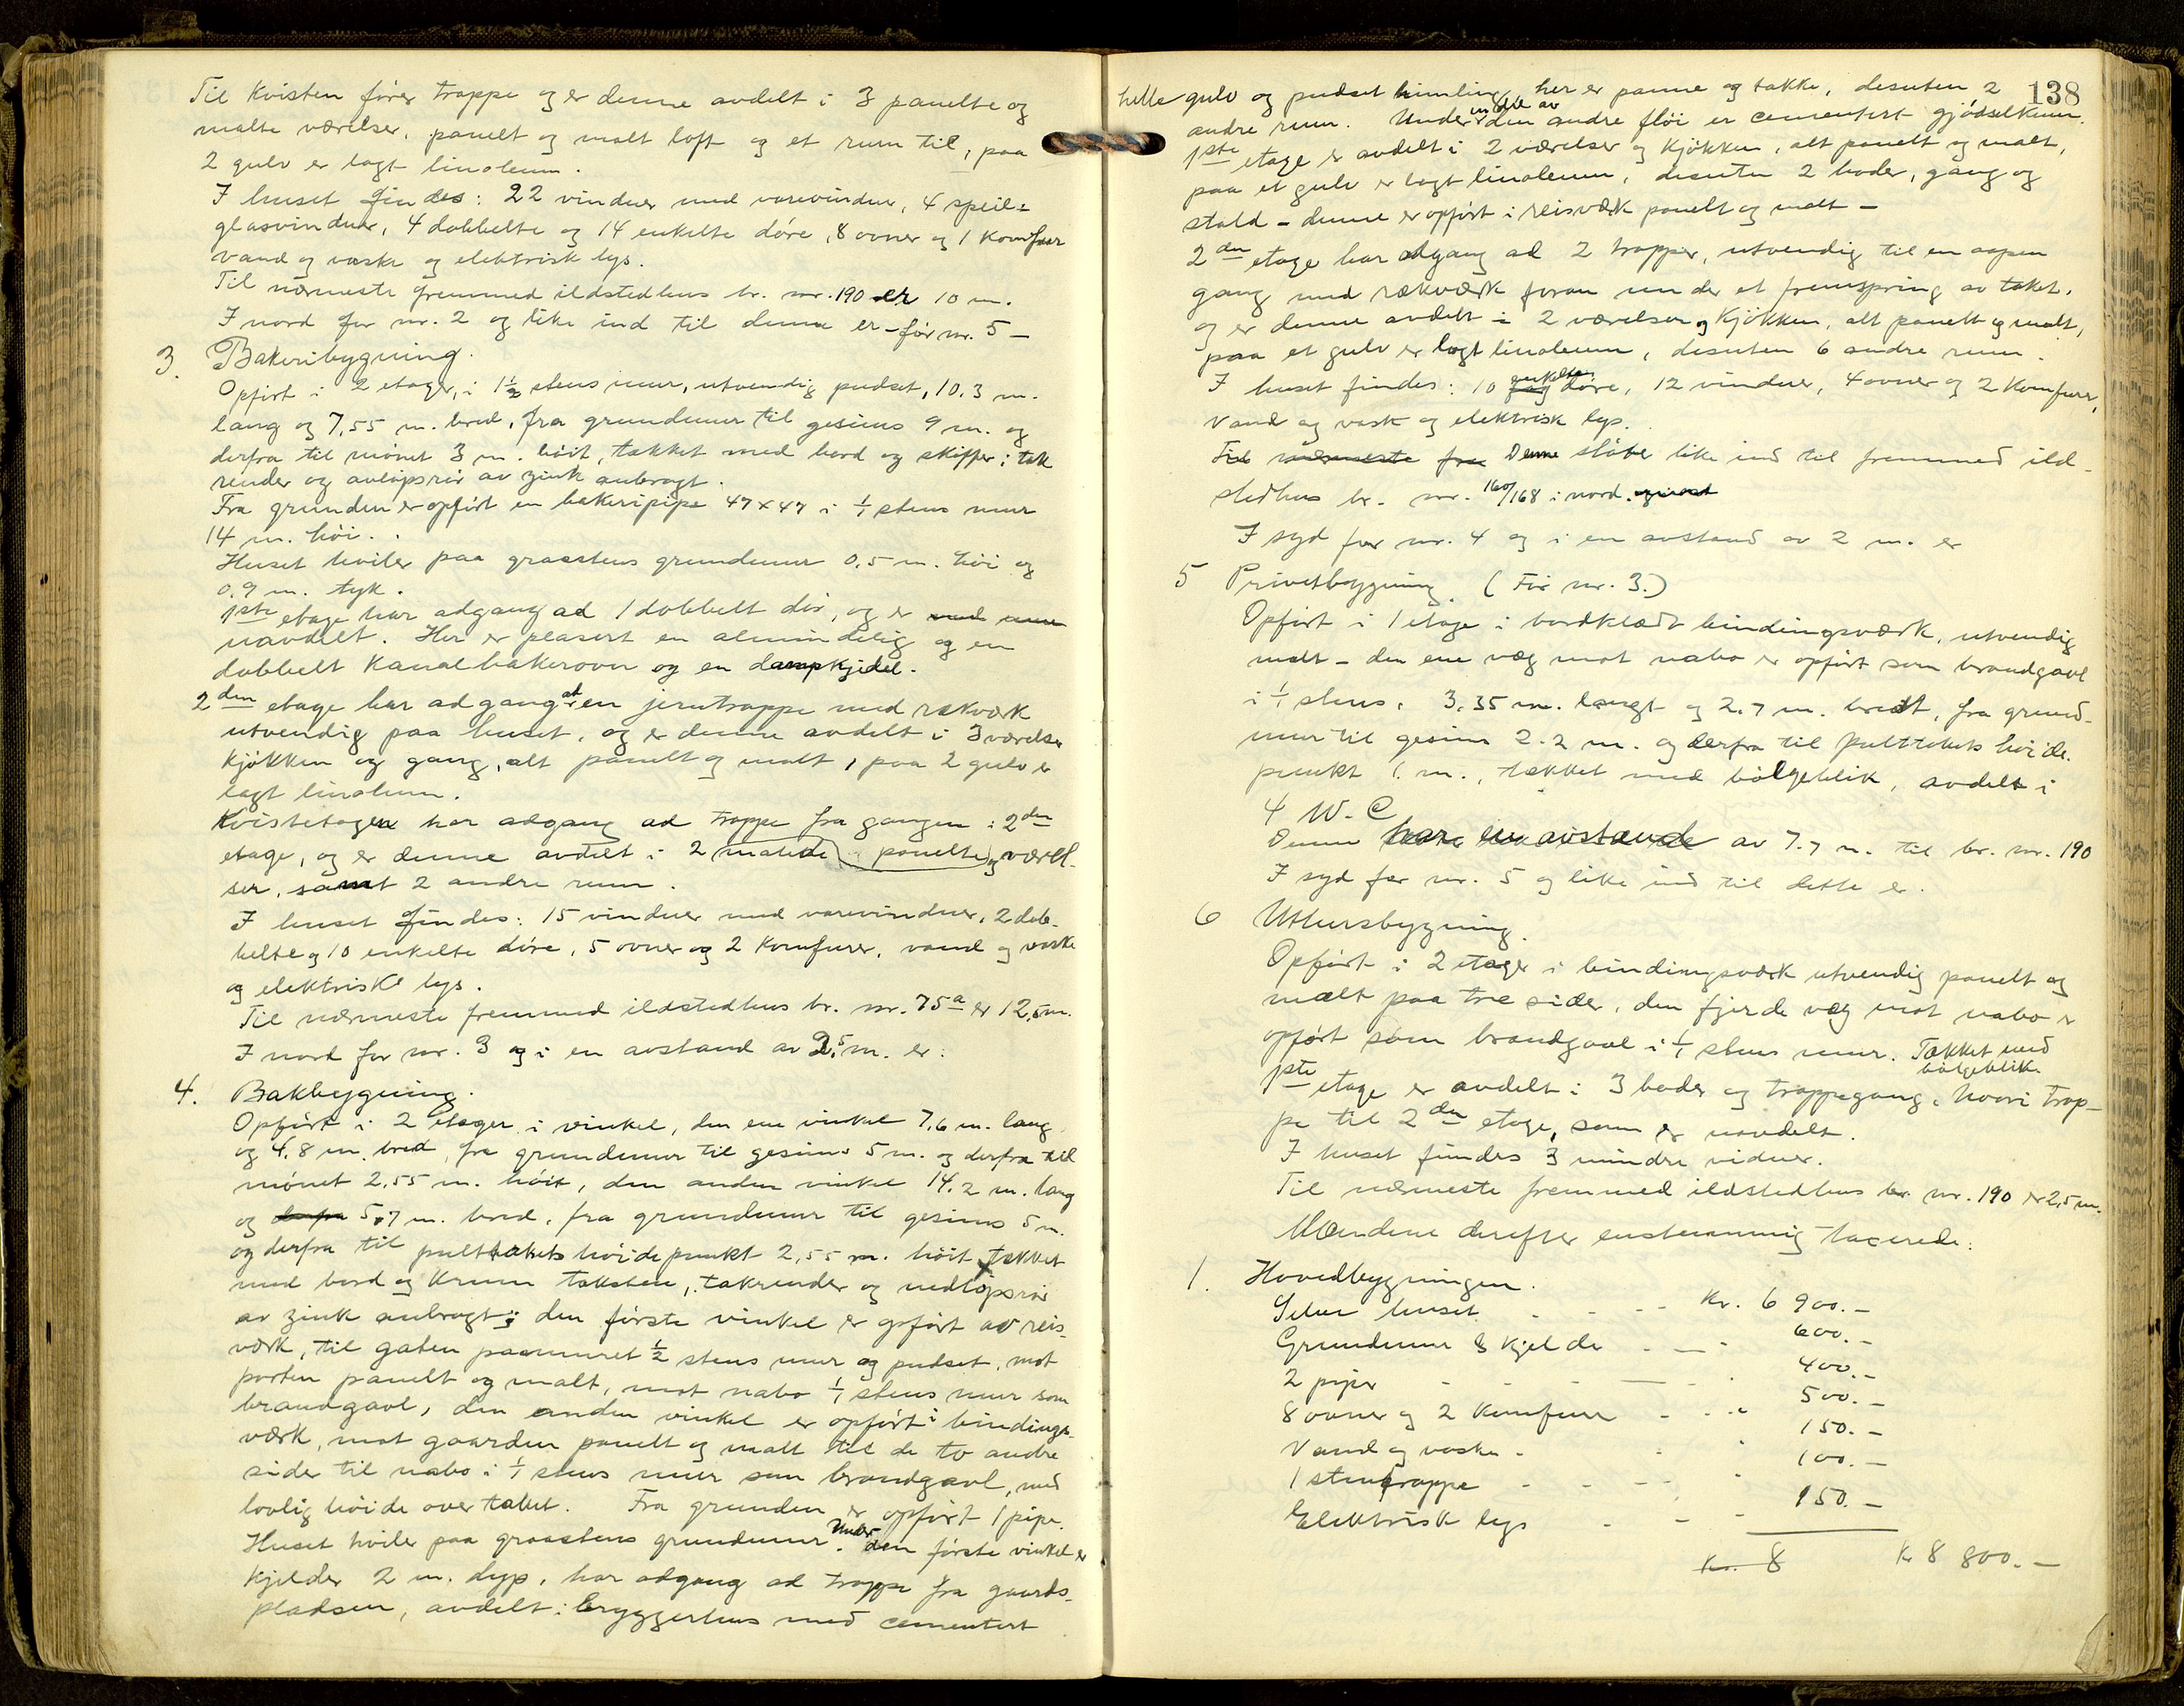 Til Kvisten fører trappe og er denne avdelt i 3 panelte og
malte værelser, panelt og malt loft og et rum til, paa
2 gulv er lagt linoleum.
I huset findes: 22 vinduer med varevinduer, 4 speil=
glasvinduer, 4 dobbelte og 14 enkelte døre, 8 ovner og 1 Komfur
vand og vaske og elektrisk lys.
Til nærmeste fremmed ildstedhus br. nr. 190 er 10 m.
I nord for nr. 2 og like ind til denne er - før nr. 5 -
3. Bakeribygning.
Opført i 2 etager, i 1½ stens mur, utvendig pudset, 10.3 m.
lang og 7,55 m. bred, fra grundmur til gesims 9 m. og
derfra til mønet 3 m. høit, tækket med bord og skiffer; tak
render og avløpsrør av zink anbragt.
Fra grunden er opført en bakeripipe 47x47 i 1/1 stens mur
14 m. høi.
Huset hviler paa graastens grundmur 0,5 m. høi og
0.9 m. tyk.
1ste etage har adgang ad 1 dobbelt dør, og er
uavdelt. Her er plasert en almindelig og en
dobbelt Kanalbakerovn og en dampkjedel.
2den etage har adgang ad en jerntrappe med rækværk
utvendig paa huset, og er denne avdelt i 3 værelser
Kjøkken og gang, alt panelt og malt, paa 2 gulv er
lagt linoleum.
Kvistetagen har adgang ad trappe fra gangen i 2den
etage, og er denne avdelt i 2 malede panelte og værel-
ser, samt 2 andre rum.
I huset findes: 15 vinduer med varevinduer, 2 dob-
belte og 10 enkelte døre, 5 ovner og 2 Komfurer, vand og vaske
og elektrisk lys.
Til nærmeste fremmed ildstedhus br. nr. 75a er 12,5 m.
I nord for nr. 3 og i en avstand av 2,5 m. er:
4. Bakbygning.
Opført i 2 etager i vinkel, den ene vinkel 7,6 m. lang
og 4,8 m. bred, fra grundmur til gesims 5 m. og derfra til
mønet 2,55 m. høit, den anden vinkel 14.2 m. lang
og derfra 5,7 m. bred, fra grundmur til gesims 5 m.
og derfra til pulttakets høidepunkt 2,55 m. høit, tækket
med bord og Krum taksten, takrender og nedløpsrør
av zink anbragt; den første vinkel er opført av reis-
værk, til gaten paamuret ½ stens mur og pudset, mot
porten panelt og malt, mot nabo 1/1 stens mur som
brandgavl, den anden vinkel er opført i bindings-
værk, mot gaarden panelt og malt til de to andre
sider til nabo i 1/1 stens mur som brandgavl, med
lovlig høide over taket. Fra grunden er opført 1 pipe.
Huset hviler paa graastens grundmur. Under den første vinkel er
Kjelder 2 m. dyp, har adgang ad trappe fra gaards-
pladsen, avdelt i bryggerhus med cementert
138
helle gulv og pudset himling, her er panne og takke, desuten 2
andre rum. Under en del av den andre fløi er cementert gjødselkum.
1ste etage er avdelt i 2 værelser og Kjøkken, alt panelt og malt,
paa et gulv er lagt linoleum, desuten 2 boder, gang og
stald - denne er opført i reisværk panelt og malt -
2den etage har adgang ad 2 trapper, utvendig til en aapen
gang med rækværk foran under et fremspring av taket,
og er denne avdelt i 2 værelser og Kjøkken, alt panelt og malt,
paa et gulv er lagt linoleum, desuten 6 andre rum.
I huset findes: 10 fag enkelte døre, 12 vinduer, 4 ovner og 2 Komfurer,
vand og vask og elektrisk lys.
Til nærmeste fra Denne støter like ind til fremmed ild-
stedhus br. nr. 160/168 i nord.
I syd for nr. 4 og i en avstand av 2 m. er
5 Privetbygning. (Før nr. 3.)
Opført i 1 etage i bordklædt bindingsværk, utvendig
malt - den ene væg mot nabo er opført som brandgavl
i 1/1 stens. 3,35 m. langt og 2,7 m. bredt, fra grund-
mur til gesims 2.2 m. og derfra til pulttakets høide.
punkt 1 m., tækket med bølgeblik, avdelt i
4 W.C
Denne har en avstand av 7.7 m. til br. nr. 190
I syd for nr. 5 og like ind til dette er.
6 Uthusbygning.
Opført i 2 etager i bindingsværk utvendig panelt og
malt paa tre sider, den fjerde væg mot nabo er
opført som brandgavl i 1/1 stens mur. Tækket med
bølgeblik.
1ste etage er avdelt i 3 boder og trappegang, hvori trap-
pe til 2den etage, som er uavdelt.
I huset findes 3 mindre viduer.
Til nærmeste fremmed ildstedhus br. nr. 190 er 2,5 m.
Mændene derefter enstemmig taxerede:
1. Hovedbygningen.
Selve huset - - - Kr. 6 900.-
Grundmur & kjelder - - 600.-
2 piper - - - 400.-
8 ovner og 2 Komfurer - - 500.-
Vand og vaske - 150.-
1 stentrappe - - - 100.-
Elektrisk lys - - - 150.-
Kr. 8 Kr 8 800.-